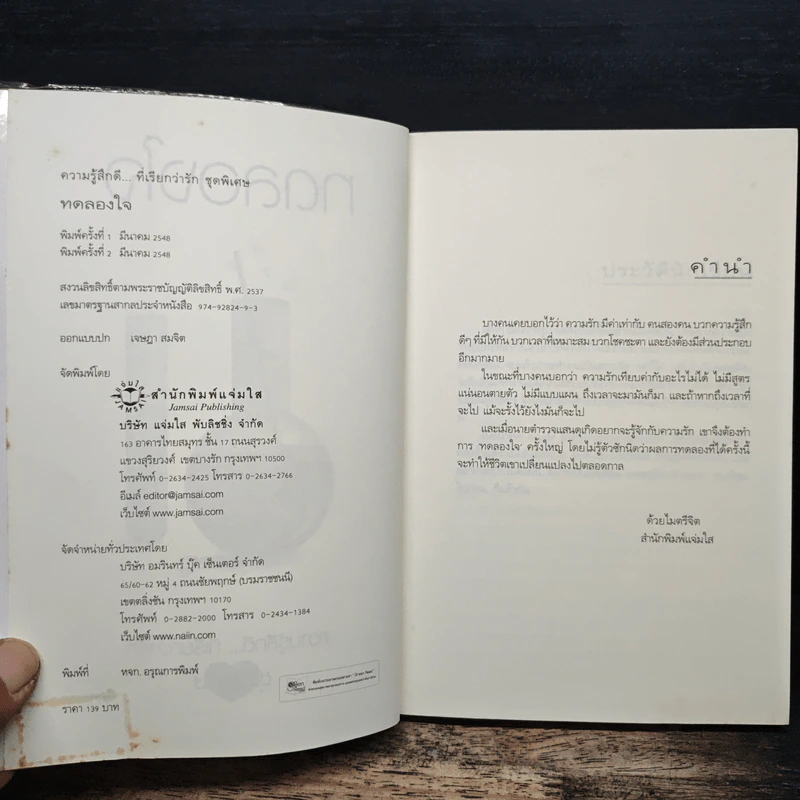 ความรู้สึกดี... ที่เรียกว่ารัก ชุดพิเศษ
ทดลองใจ
พิมพ์ครั้งที่ 1 มีนาคม 2548
พิมพ์ครั้งที่ 2 มีนาคม 2548
สงวนลิขสิทธิ์ตามพระราชบัญญัติลิขสิทธิ์ พ.ศ. 2537
เลขมาตรฐานสากลประจำหนังสือ 974-92824-9-3
ออกแบบปก เจษฎา สมจิต
จัดพิมพ์โดย
สำนักพิมพ์แจ่มใส
Jamsai Publishing
บริษัท แจ่มใส พับลิชชิ่ง จำกัด
163 อาคารไทยสมุทร ชั้น 17 ถนนสุรวงศ์
แขวงสุริยวงศ์ เขตบางรัก กรุงเทพฯ 10500
โทรศัพท์ 0-2634-2425 โทรสาร 0-2634-2766
อีเมล์ editor@jamsai.com
เว็บไซต์ www.jamsai.com
จัดจำหน่ายทั่วประเทศโดย
บริษัท อมรินทร์ บุ๊ค เซ็นเตอร์ จำกัด
65/60-62 หมู่ 4 ถนนชัยพฤกษ์ (บรมราชชนนี)
เขตตลิ่งชัน กรุงเทพฯ 10170
โทรศัพท์ 0-2882-2000 โทรสาร 0-2434-1384
เว็บไซต์ www.naiin.com
พิมพ์ที่ หจก. อรุณการพิมพ์
ราคา 139 บาท
คำนำ
บางคนเคยบอกไว้ว่า ความรัก มีค่าเท่ากับ คนสองคน บวกความรู้สึก
ดีๆ ที่มีให้กัน บวกเวลาที่เหมาะสม บวกโชคชะตา และยังต้องมีส่วนประกอบ
อีกมากมาย
ในขณะที่บางคนบอกว่า ความรักเทียบค่ากับอะไรไม่ได้ ไม่มีสูตร
แน่นอนตายตัว ไม่มีแบบแผน ถึงเวลาจะมามันก็มา และถ้าหากถึงเวลาที่
จะไป แม้จะรั้งไว้ยังไงมันก็จะไป
และเมื่อนายตำรวจแสนดุเกิดอยากจะรู้จักกับความรัก เขาจึงต้องทำ
การ 'ทดลองใจ' ครั้งใหญ่ โดยไม่รู้ตัวซักนิดว่าผลการทดลองที่ได้ครั้งนี้
จะทำให้ชีวิตเขาเปลี่ยนแปลงไปตลอดกาล
ด้วยไมตรีจิต
สำนักพิมพ์แจ่มใส